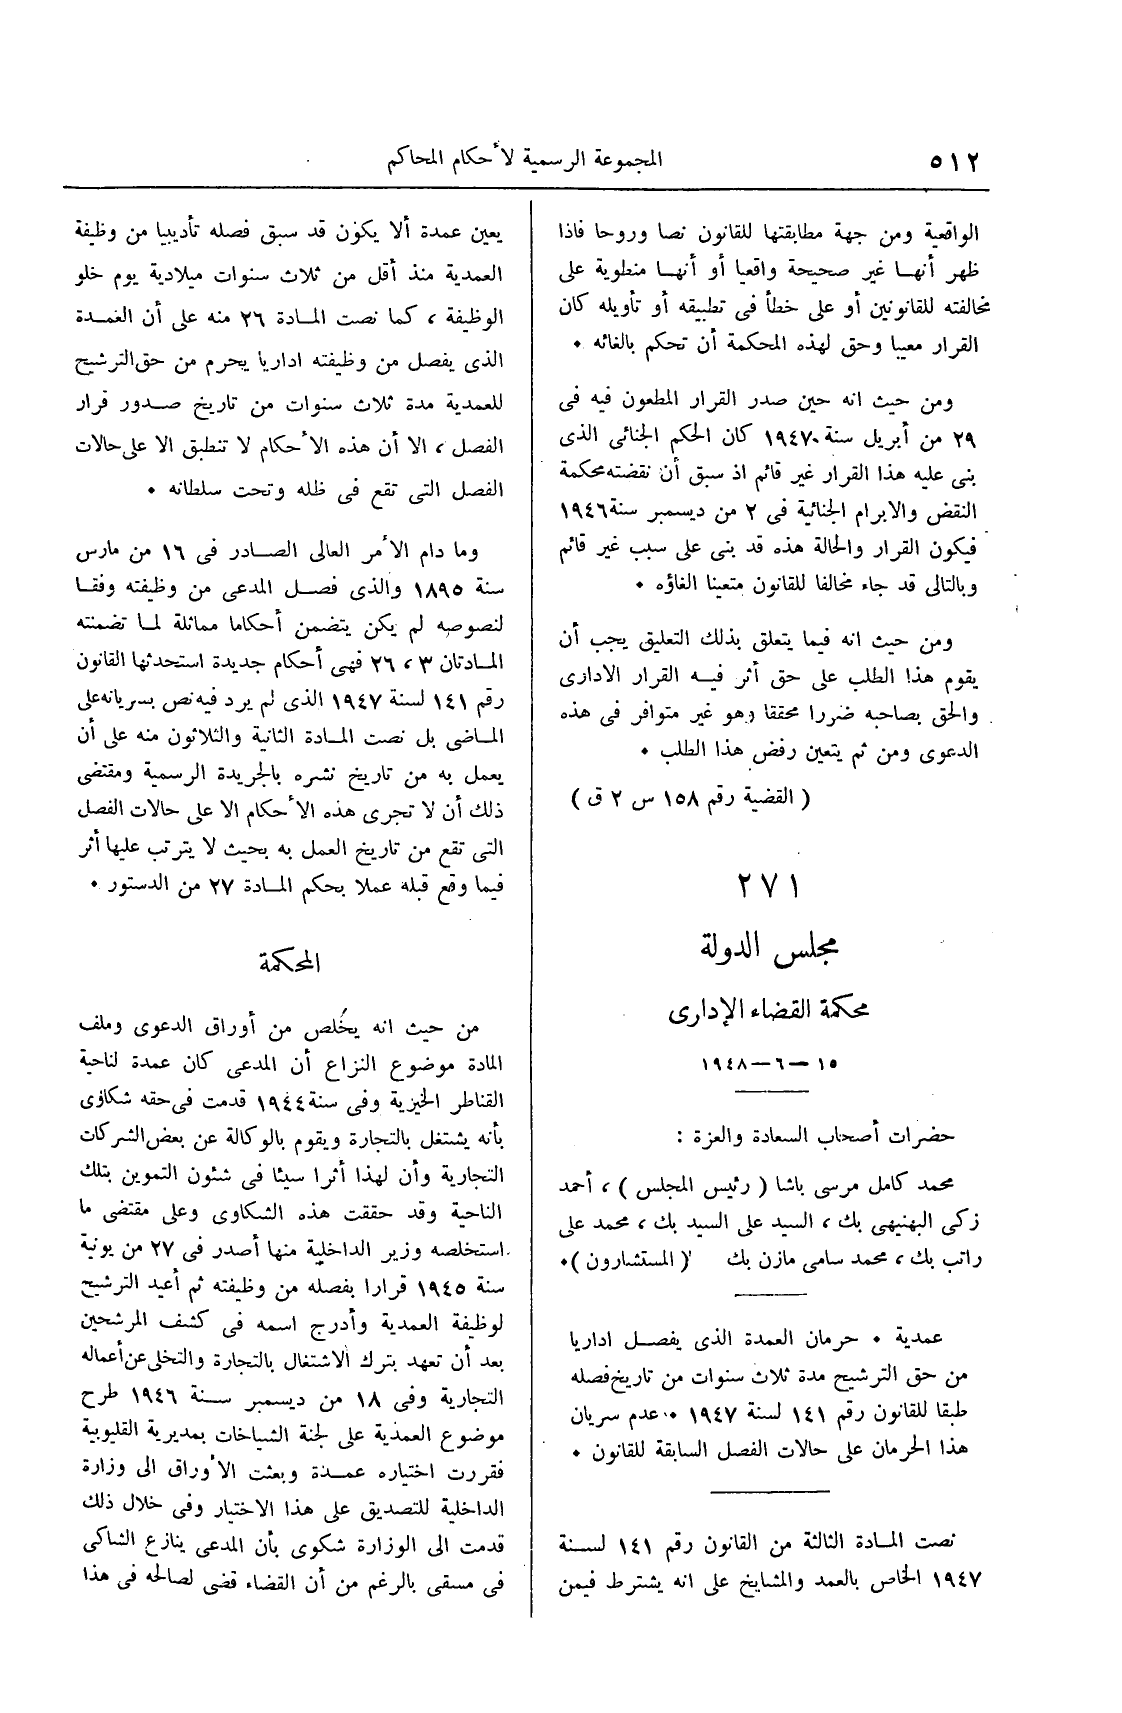 ٥١٢
المجموعة الرسمية لأحكام المحاكم
الواقعية ومن جهة مطابقتها للقانون نصا وروحا فاذا
ظهر أنهـا غير صحيحة واقعيا أو أنهـا منطوية على
مخالفته للقوانين أو على خطأ فى تطبيقه أو تأويله كان
القرار معيبا وحق لهذه المحكمة أن تحكم بالغائه .
ومن حيث انه حين صدر القرار المطعون فيه فى
٢٩ من أبريل سنة ١٩٤٧ كان الحكم الجنائى الذى
بنى عليه هذا القرار غير قائم اذ سبق أن نقضته محكمة
النقض والابرام الجنائية فى ٢ من ديسمبر سنة ١٩٤٦
فيكون القرار والحالة هذه قد بنى على سبب غير قائم
وبالتالى قد جاء مخالفا للقانون متعينا الغاؤه .
ومن حيث انه فيما يتعلق بذلك التعليق يجب أن
يقوم هذا الطلب على حق أثر فيـه القرار الادارى
والحق بصاحبه ضررا محققا وهو غير متوافر فى هذه
الدعوى ومن ثم يتعين رفض هذا الطلب .
( القضية رقم ١٥٨ س ٢ ق )
٢٧١
مجلس الدولة
محكمة القضاء الإدارى
١٥ – ٦ – ١٩٤٨
حضرات أصحاب السعادة والعزة :
محمد كامل مرسى باشا ( رئيس المجلس ) ، أحمد
زكى البهنيهى بك ، السيد على السيد بك ، محمد على
راتب بك ، محمد سامى مازن بك ( المستشارون ) .
عمدية . حرمان العمدة الذى يفصـل اداريا
من حق الترشيح مدة ثلاث سنوات من تاريخ فصله
طبقا للقانون رقم ١٤١ لسنة ١٩٤٧ . عدم سريان
هذا الحرمان على حالات الفصل السابقة للقانون .
نصت المـادة الثالثة من القانون رقم ١٤١ لسـنة
١٩٤٧ الخاص بالعمد والمشايخ على انه يشترط فيمن
يعين عمدة ألا يكون قد سبق فصله تأديبيا من وظيفة
العمدية منذ أقل من ثلاث سنوات ميلادية يوم خلو
الوظيفة ، كما نصت المـادة ٢٦ منه على أن العمـدة
الذى يفصل من وظيفته اداريا يحرم من حق الترشيح
للعمدية مدة ثلاث سنوات من تاريخ صـدور قرار
الفصل ، الا أن هذه الأحكام لا تنطبق الا على حالات
الفصل التى تقع فى ظله وتحت سلطانه .
وما دام الأمر العالى الصـادر فى ١٦ من مارس
سنة ١٨٩٥ والذى فصـل المدعى من وظيفته وفقـا
لنصوصه لم يكن يتضمن أحكاما مماثلة لمـا تضمنته
المـادتان ٣ ، ٢٦ فهى أحكام جديدة استحدثها القانون
رقم ١٤١ لسنة ١٩٤٧ الذى لم يرد فيه نص بسريانه على
المـاضى بل نصت المـادة الثانية والثلاثون منه على أن
يعمل به من تاريخ نشره بالجريدة الرسمية ومقتضى
ذلك أن لا تجرى هذه الأحكام الا على حالات الفصل
التى تقع من تاريخ العمل به بحيث لا يترتب عليها أثر
فيما وقع قبله عملا بحكم المـادة ٢٧ من الدستور .
المحكمة
من حيث انه يخُلص من أوراق الدعوى وملف
المادة موضوع النزاع أن المدعى كان عمدة لناحية
القناطر الخيرية وفى سنة ١٩٤٤ قدمت فى حقه شكاوى
بأنه يشتغل بالتجارة ويقوم بالوكالة عن بعض الشركات
التجارية وأن لهذا أثرا سيئا فى شئون التموين بتلك
الناحية وقد حققت هذه الشكاوى وعلى مقتضى ما
استخلصه وزير الداخلية منها أصدر فى ٢٧ من يونية
سنة ١٩٤٥ قرارا بفصله من وظيفته ثم أعيد الترشيح
لوظيفة العمدية وأدرج اسمه فى كشف المرشحين
بعد أن تعهد بترك الاشتغال بالتجارة والتخلى عن أعماله
التجارية وفى ١٨ من ديسمبر سـنة ١٩٤٦ طرح
موضوع العمدية على لجنة الشياخات بمديرية القليوبية
فقررت اختياره عمـدة وبعثت الأوراق الى وزارة
الداخلية للتصديق على هذا الاختيار وفى خلال ذلك
قدمت الى الوزارة شكوى بأن المدعى ينازع الشاكى
فى مسقى بالرغم من أن القضاء قضى لصالحه فى هذا